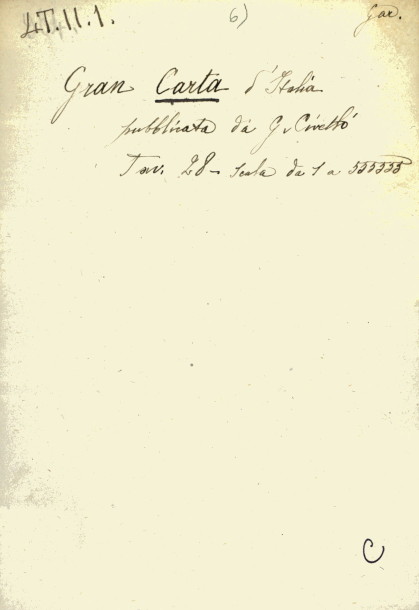 LT.II.1.
6)
Gar.
Gran Carta d'Italia
pubblicata da G. Civelli
Tav. 28 - scala da 1 a 555555
C